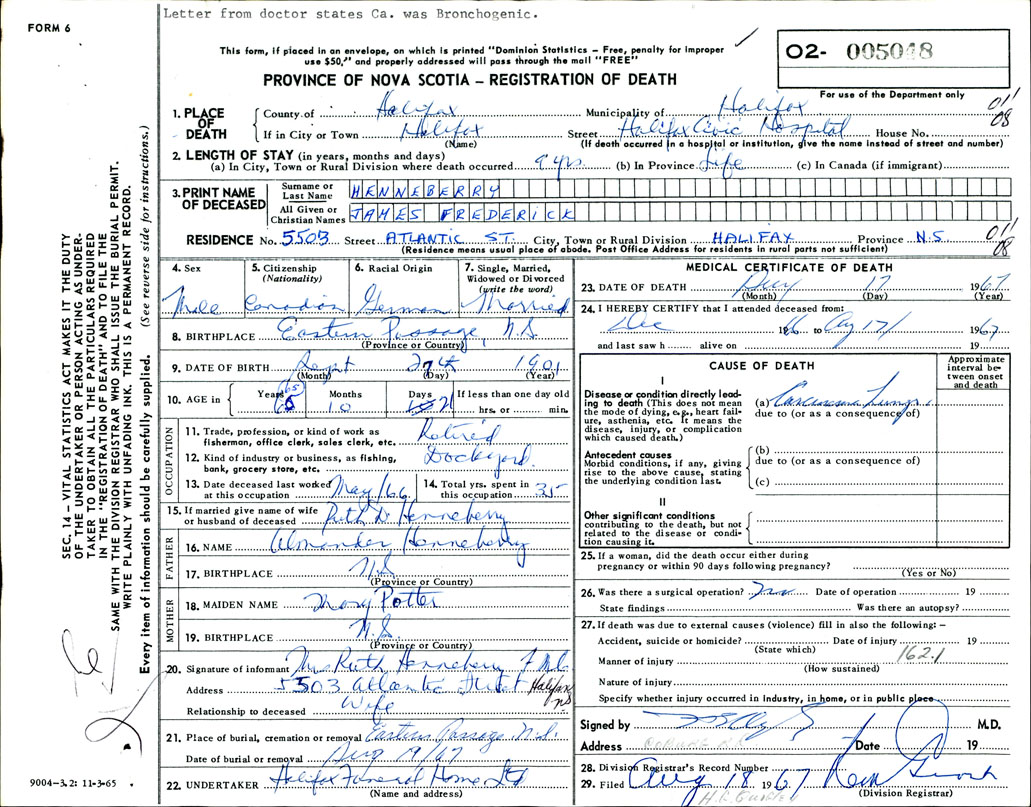 Letter from doctor states Ca. was Bronchogenic.
FORM 6
This form, if placed in an envelope, on which is printed "Dominion Statistics – Free, penalty for improper
use $50," and properly addressed will pass through the mail "FREE"
O2- 005048
PROVINCE OF NOVA SCOTIA – REGISTRATION OF DEATH
For use of the Department only
1. PLACE OF DEATH County of Halifax Municipality of Halifax 011
If in City or Town Halifax Street Halifax Civic Hospital House No. 08
(Name) (If death occurred in a hospital or institution, give the name instead of street and number)
2. LENGTH OF STAY (in years, months and days)
(a) In City, Town or Rural Division where death occurred 9 yrs. (b) In Province Life (c) In Canada (if immigrant)
3. PRINT NAME OF DECEASED Surname or Last Name HENNEBERRY
All Given or Christian Names JAMES FREDERICK
RESIDENCE No. 5503 Street ATLANTIC ST. City, Town or Rural Division HALIFAX Province N.S 011
(Residence means usual place of abode. Post Office Address for residents in rural parts not sufficient) 08
SEC. 14 – VITAL STATISTICS ACT MAKES IT THE DUTY
OF THE UNDERTAKER OR PERSON ACTING AS UNDER-
TAKER TO OBTAIN ALL THE PARTICULARS REQUIRED
IN THE "REGISTRATION OF DEATH" AND TO FILE THE
SAME WITH THE DIVISION REGISTRAR WHO SHALL ISSUE THE BURIAL PERMIT.
WRITE PLAINLY WITH UNFADING INK. THIS IS A PERMANENT RECORD.
Every item of information should be carefully supplied. (See reverse side for instructions.)
4. Sex 5. Citizenship 6. Racial Origin 7. Single, Married,
(Nationality) Widowed or Divorced
(write the word)
Male Canadian German Married
8. BIRTHPLACE Eastern Passage, N.S.
(Province or Country)
9. DATE OF BIRTH Sept 27th 1901
(Month) (Day) (Year)
10. AGE in Years Months Days If less than one day old
65 10 21 hrs. or min.
OCCUPATION
11. Trade, profession, or kind of work as
fisherman, office clerk, sales clerk, etc. Retired
12. Kind of industry or business, as fishing,
bank, grocery store, etc. Dockyard.
13. Date deceased last worked 14. Total yrs. spent in
at this occupation May/66 this occupation 35
15. If married give name of wife
or husband of deceased Ruth D. Henneberry
FATHER
16. NAME Henneberry
17. BIRTHPLACE N.S.
(Province or Country)
MOTHER
18. MAIDEN NAME Mary Potter
19. BIRTHPLACE N.S.
(Province or Country)
20. Signature of informant Mrs Ruth Henneberry
Address 5503 Atlantic Street Halifax
NS
Relationship to deceased Wife
21. Place of burial, cremation or removal Eastern Passage N.S.
Date of burial or removal Aug 19/67
22. UNDERTAKER Halifax Funeral Home Ltd
(Name and address)
9004–3.2: 11-3-65
MEDICAL CERTIFICATE OF DEATH
23. DATE OF DEATH Aug 17 1967
(Month) (Day) (Year)
24. I HEREBY CERTIFY that I attended deceased from:
Dec 1966 to Aug 17/ 1967
and last saw h alive on 19
CAUSE OF DEATH Approximate
interval be-
tween onset
and death
I
Disease or condition directly lead-
ing to death (This does not mean (a) Carcinoma Lung.
the mode of dying, e.g., heart fail- due to (or as a consequence of)
ure, asthenia, etc. It means the
disease, injury, or complication
which caused death.)
Antecedent causes (b)
Morbid conditions, if any, giving due to (or as a consequence of)
rise to the above cause, stating
the underlying condition last. (c)
II
Other significant conditions
contributing to the death, but not
related to the disease or condi-
tion causing it.
25. If a woman, did the death occur either during
pregnancy or within 90 days following pregnancy?
(Yes or No)
26. Was there a surgical operation? Date of operation 19
State findings Was there an autopsy?
27. If death was due to external causes (violence) fill in also the following: –
Accident, suicide or homicide? Date of injury 19
(State which) 162.1
Manner of injury
(How sustained)
Nature of injury
Specify whether injury occurred in industry, in home, or in public place
Signed by M.D.
Address Date 19
28. Division Registrar's Record Number
29. Filed Aug 18 1967
(Division Registrar)